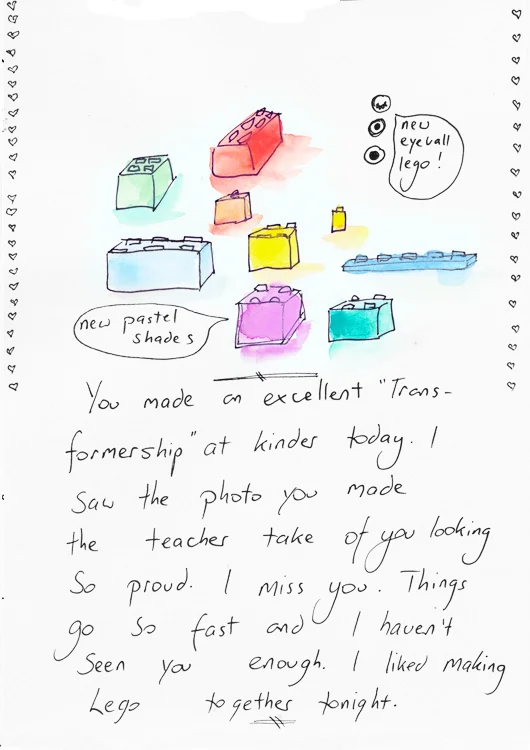 new
eyeball
lego!
new pastel
shades
You made an excellent "Trans-
formership" at kinder today. I
saw the photo you made
the teacher take of you looking
so proud. I miss you. Things
go so fast and I haven't
seen you enough. I liked making
Lego together tonight.